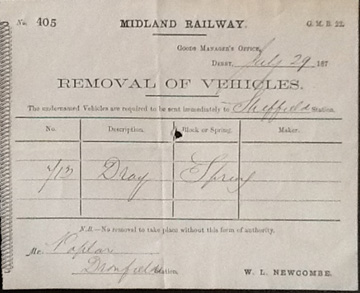 No. 405 MIDLAND RAILWAY. G. M. B. 22.
GOODS MANAGER'S OFFICE,
DERBY, July 29 187
REMOVAL OF VEHICLES.
The undernamed Vehicles are required to be sent immediately to Sheffield Station.
No. Description. Block or Spring. Maker.
713 Dray Spring
N.B.—No removal to take place without this form of authority.
Mr. Poplar
Dronfield Station. W. L. NEWCOMBE.